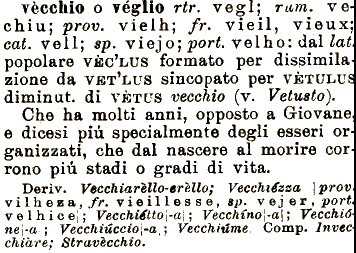 vècchio o véglio rtr. vegl; rum. ve-
chiu; prov. vielh; fr. vieil, vieux;
cat. vell; sp. viejo; port. velho: dal lat.
popolare VÈC'LUS formato per dissimila-
zione da VET'LUS sincopato per VÈTULUS
diminut. di VÈTUS vecchio (v. Vetusto).
Che ha molti anni, opposto a Giovane,
e dicesi più specialmente degli esseri or-
ganizzati, che dal nascere al morire cor-
rono più stadi o gradi di vita.
Deriv. Vecchiarèllo-erèllo; Vecchiézza [prov.
vilheza, fr. vieillesse, sp. vejer, port.
velhice]; Vecchiétto[-a]; Vecchíno[-a]; Vecchió-
ne[-a]; Vecchiúccio[-a]; Vecchiúme. Comp. Invec-
chiàre; Stravècchio.